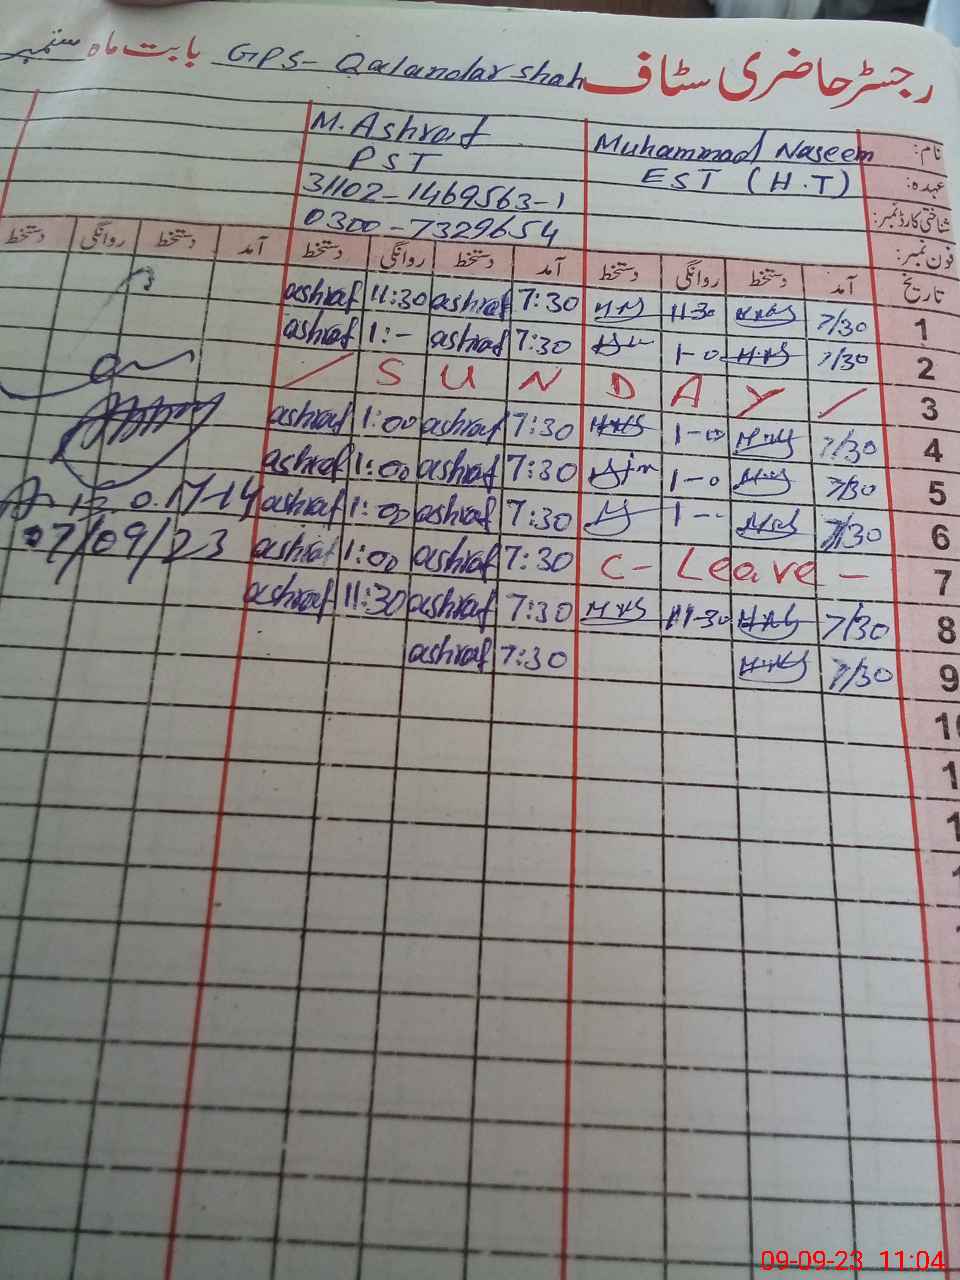 رجسٹر حاضری سٹاف GPS- Qalandar shah بابت ماہ ستمبر
نام: Muhammad Naseem M. Ashraf
عہدہ: EST (H.T) PST
شناختی کارڈ نمبر: 31102-1469563-1
فون نمبر: 0300-7329654
تاریخ آمد دستخط روانگی دستخط آمد دستخط روانگی دستخط آمد دستخط روانگی دستخط
1 7/30 11-30 7:30 ashraf 11:30 ashraf
2 7/30 1-0 7:30 ashraf 1:- ashraf
3 / S U N D A Y /
4 7/30 1-00 7:30 ashraf 1:00 ashraf
5 7/30 1-0 7:30 ashraf 1:00 ashraf
6 7/30 1-- 7:30 ashraf 1:00 ashraf
7 C- Leave - 7:30 ashraf 1:00 ashraf
07/09/23
8 7/30 11-30 7:30 ashraf 11:30 ashraf
9 7/30 7:30 ashraf
10
09-09-23 11:04